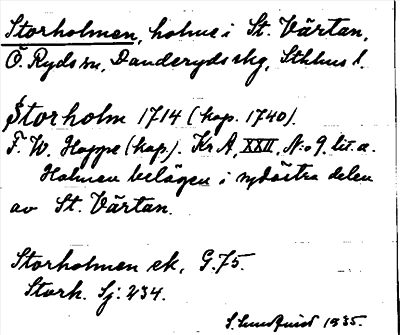 Storholmen, holme i St. Värtan,
Ö. Ryds sn, Danderyds skg, Sthlms l.
Storholm 1714 (kop. 1740).
F. W. Hoppe (kop.). Kr A, XXII, N:o 9. lit. a.
Holmen belägen i sydöstra delen
av St. Värtan.
Storholmen ek, G. 75.
Stork. Sj: 234.
S. Lundqvist 1935.